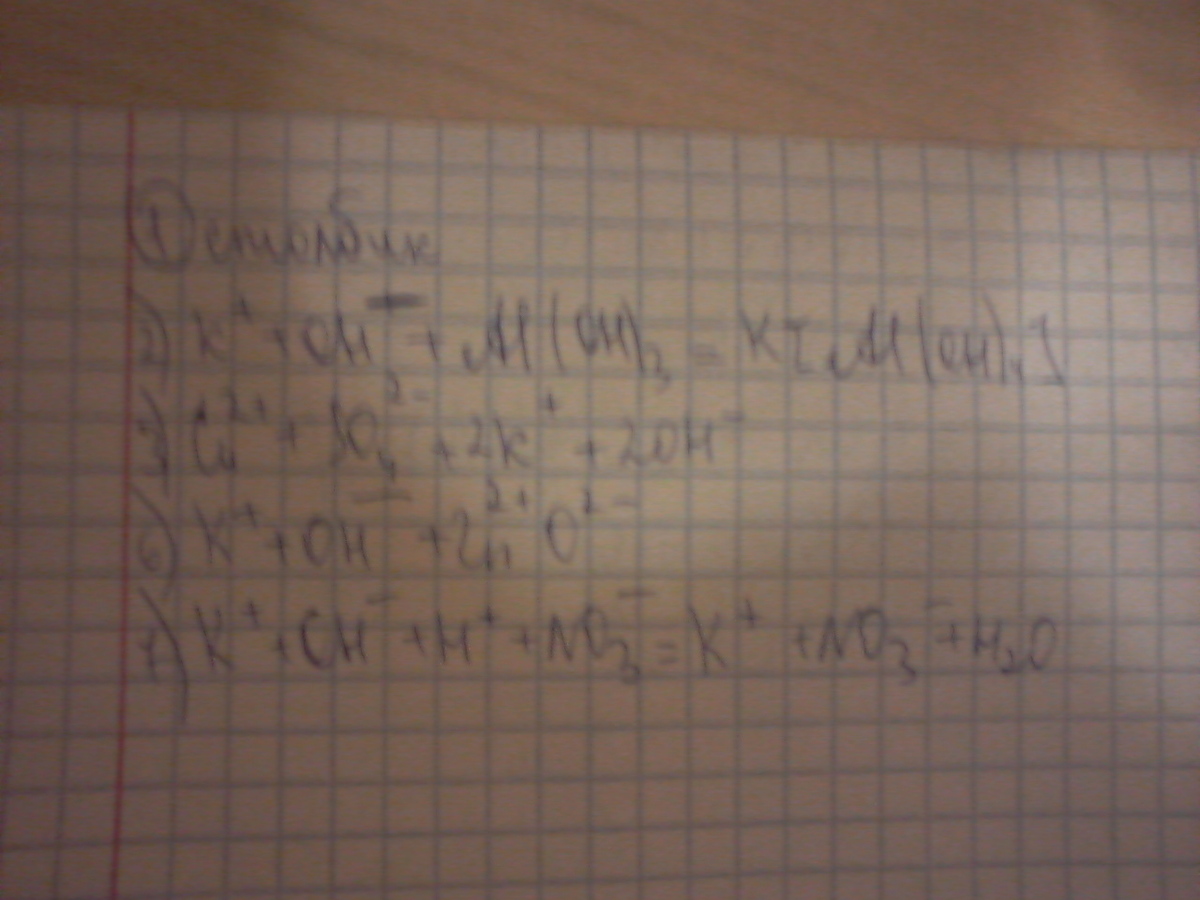 1) столбик
2) K⁺ + OH⁻ + Al(OH)₃ = K[Al(OH)₄]
3) Cu²⁺ + SO₄²⁻ + 2K⁺ + 2OH⁻
6) K⁺ + OH⁻ + Zn²⁺O²⁻
7) K⁺ + OH⁻ + H⁺ + NO₃⁻ = K⁺ + NO₃⁻ + H₂O